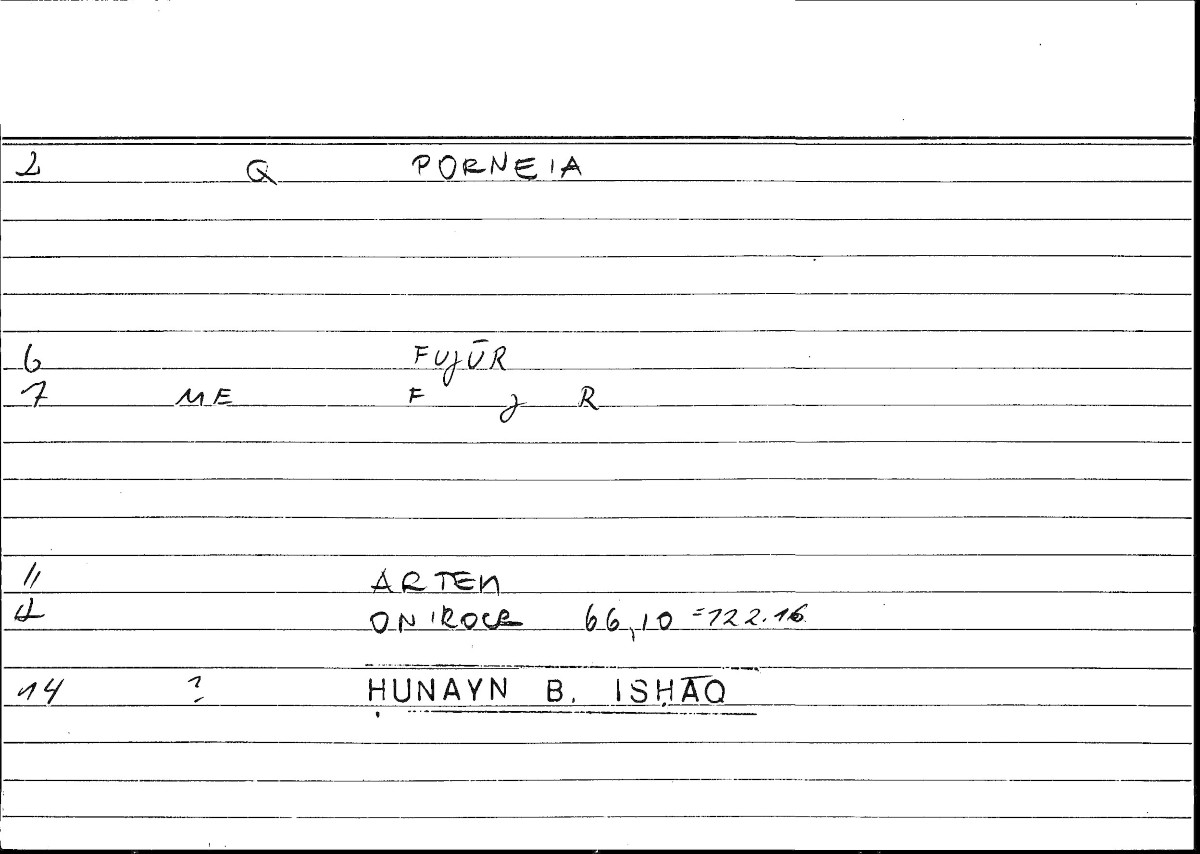 2 Q PORNEIA
6 FUJŪR
7 ME F J R
11 ARTEM
12 ONIROCR 66,10 =122.16
14 ? ḤUNAYN B. ISḤĀQ